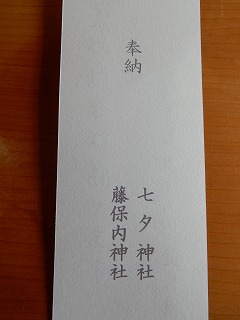 奉納
七夕神社
藤保内神社